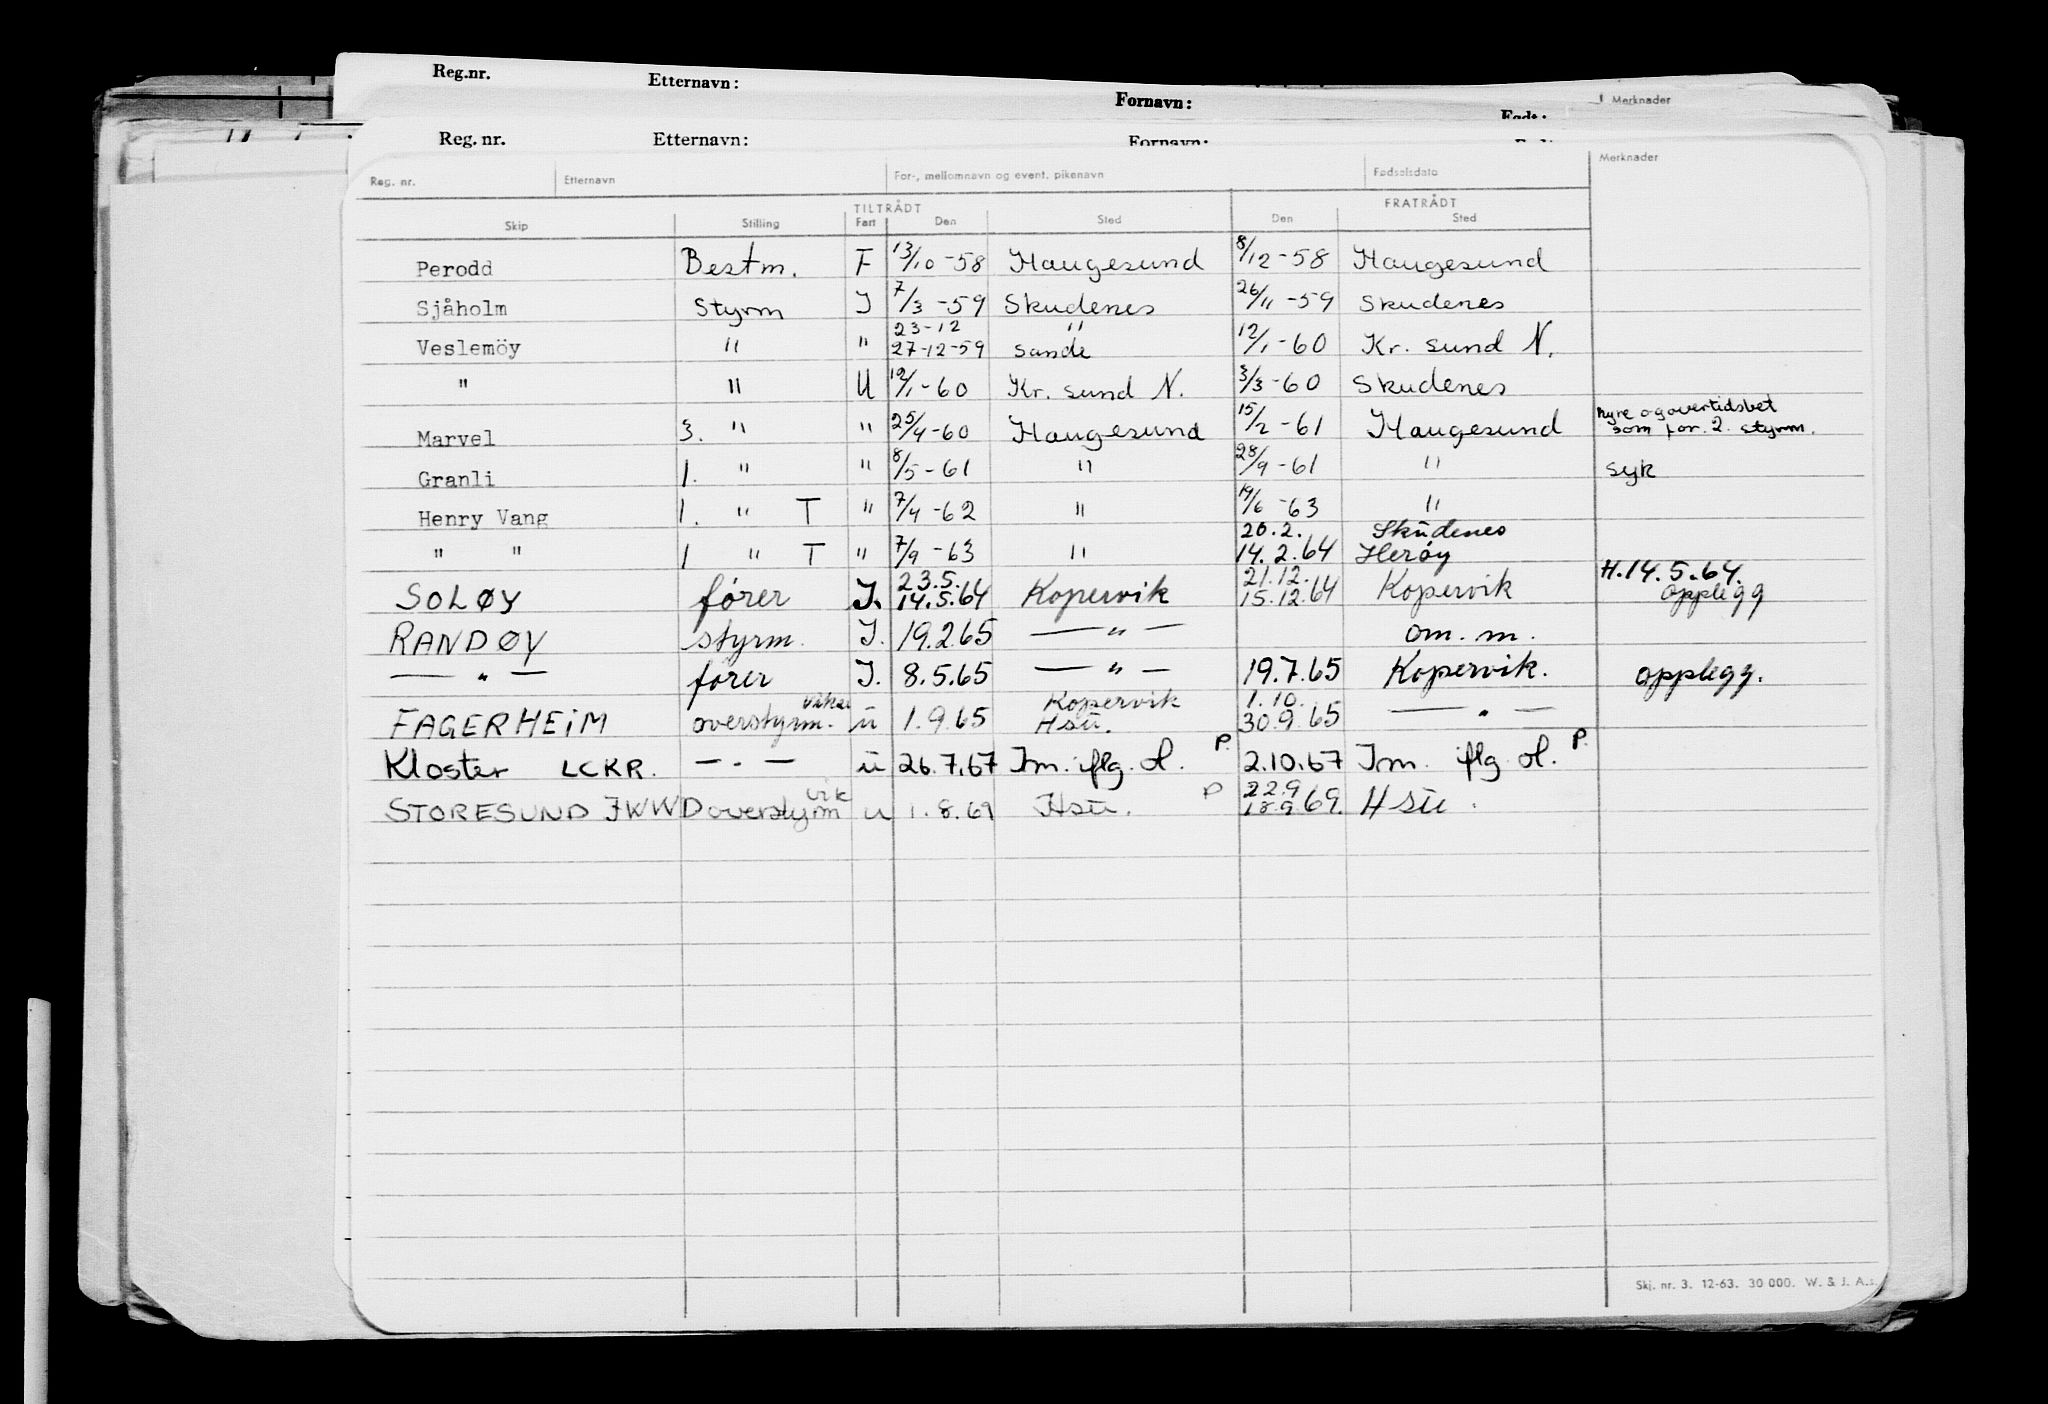 Reg.nr. Etternavn: Fornavn: Født: Merknader
Reg. nr. Etternavn: Fornavn:
Reg. nr. Etternavn For-, mellomnavn og event. pikenavn Fødselsdato Merknader
TILTRÅDT FRATRÅDT
Skip Stilling Fart Den Sted Den Sted
Perodd Bestm. F 13/10-58 Haugesund 8/12-58 Haugesund
Sjåholm Styrm I 7/3-59 Skudenes 26/11-59 Skudenes
23-12 "
Veslemöy " " 27-12-59 Sande 12/1-60 Kr. sund N.
" " U 12/1-60 Kr. sund N. 3/3-60 Skudenes
Marvel 3. " " 25/4-60 Haugesund 15/2-61 Haugesund hyre og overtidsbet
som for. 2. styrm.
Granli 1. " " 8/5-61 " 28/9-61 " syk
Henry Vang 1. " T " 7/4-62 " 19/6-63 "
20.2. Skudenes
" " 1 " T " 7/9-63 " 14.2.64 Herøy
23.5. 21.12. H.14.5.64.
SOLØY fører I. 14.5.64 Kopervik 15.12.64 Kopervik opplegg
RANDØY styrm. I. 19.2.65 — " — om. m.
— " — fører I. 8.5.65 — " — 19.7.65 Kopervik. opplegg.
vikar Kopervik 1.10.
FAGERHEIM overstyrm. u 1.9.65 Hsu. 30.9.65 — " —
Kloster LCKR. — . — u 26.7.67 Im. flg. H. P. 2.10.67 Im. flg. H. P.
vik P 22.9
STORESUND JWWD overstyrm u 1.8.69 Hsu. 18.9.69. Hsu.
Skj. nr. 3. 12-63. 30 000. W. & J. A.s.